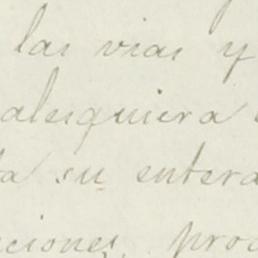 las vias y
alesquiera
ta su entera
ciones, proc